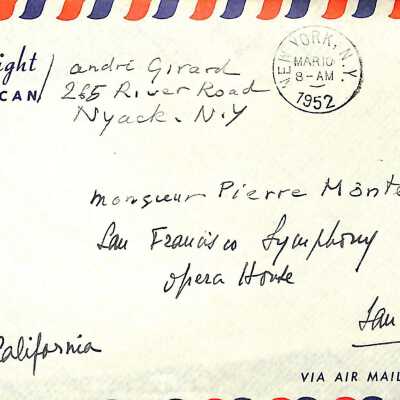 ight
CAN
andré Girard
265 River Road
Nyack. N.Y
NEW YORK, N.Y.
MAR 10
8-AM
1952
monsieur Pierre Monte
San Francisco Symphony
opera House
San
California
VIA AIR MAIL